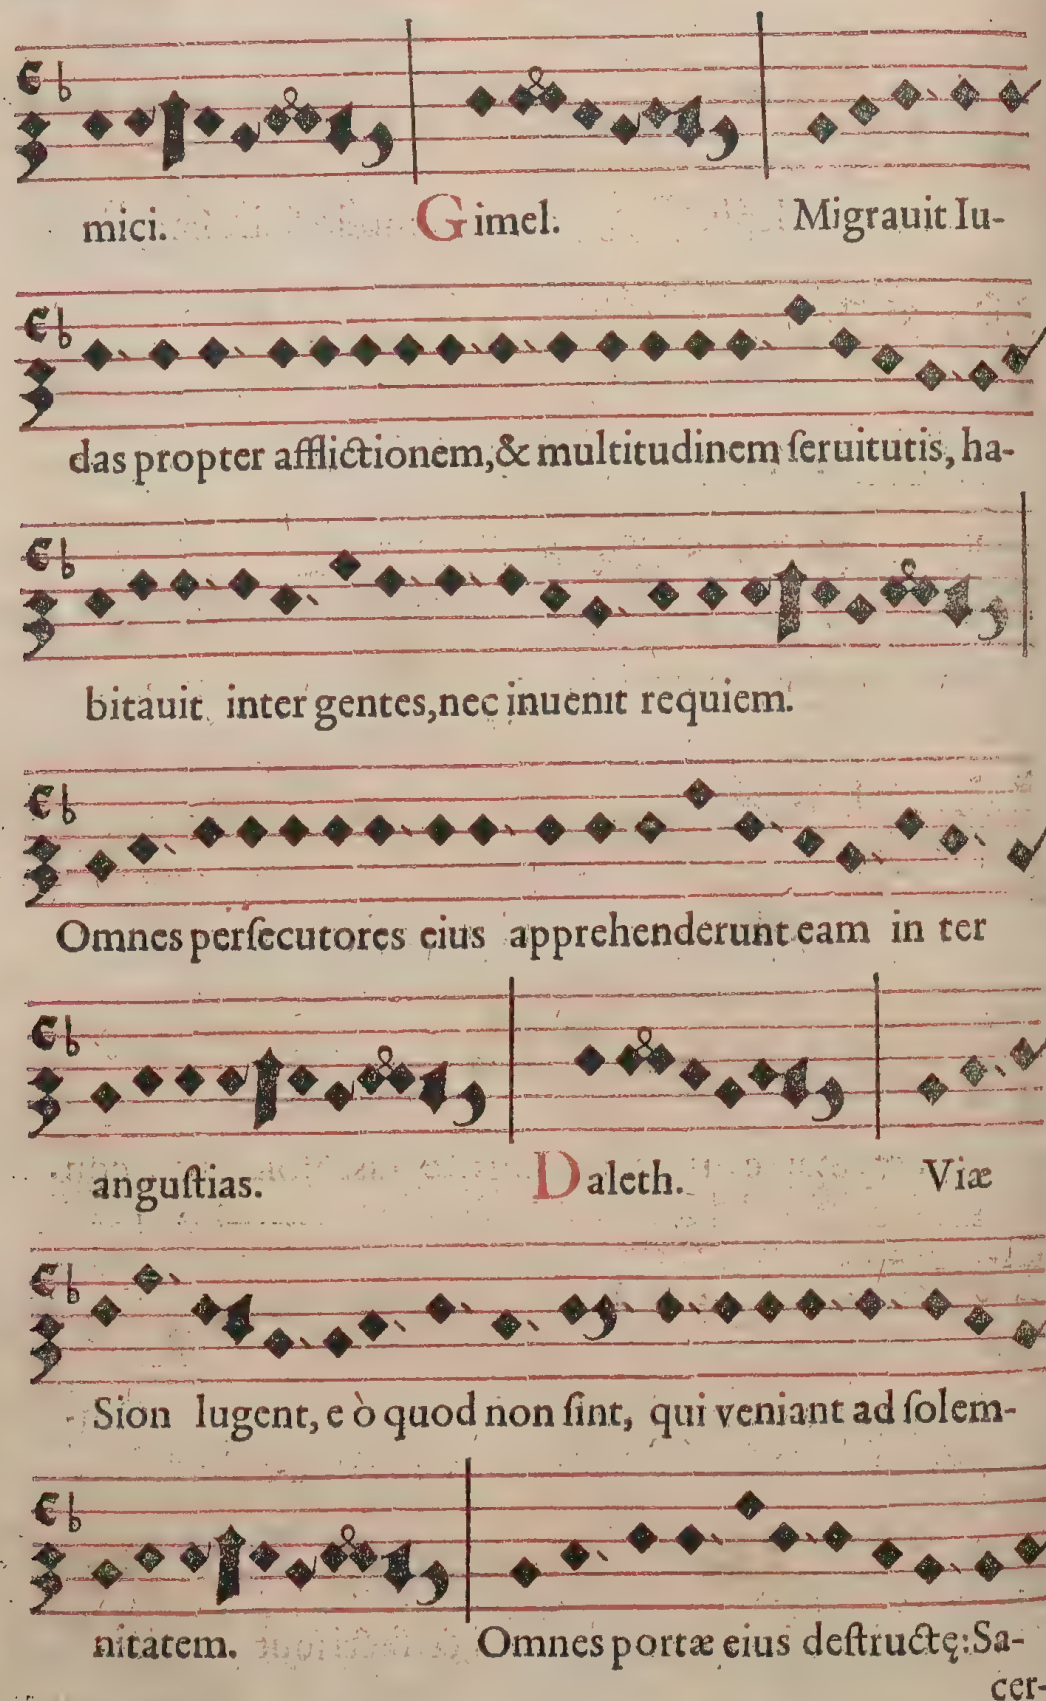 mici. Gimel. Migrauit Iu-
das propter afflictionem, & multitudinem ſeruitutis, ha-
bitauit inter gentes, nec inuenit requiem.
Omnes perſecutores eius apprehenderunt eam in ter
anguſtias. Daleth. Viæ
Sion lugent, e ò quod non ſint, qui veniant ad ſolem-
nitatem. Omnes portæ eius deſtructę: Sa-
cer-